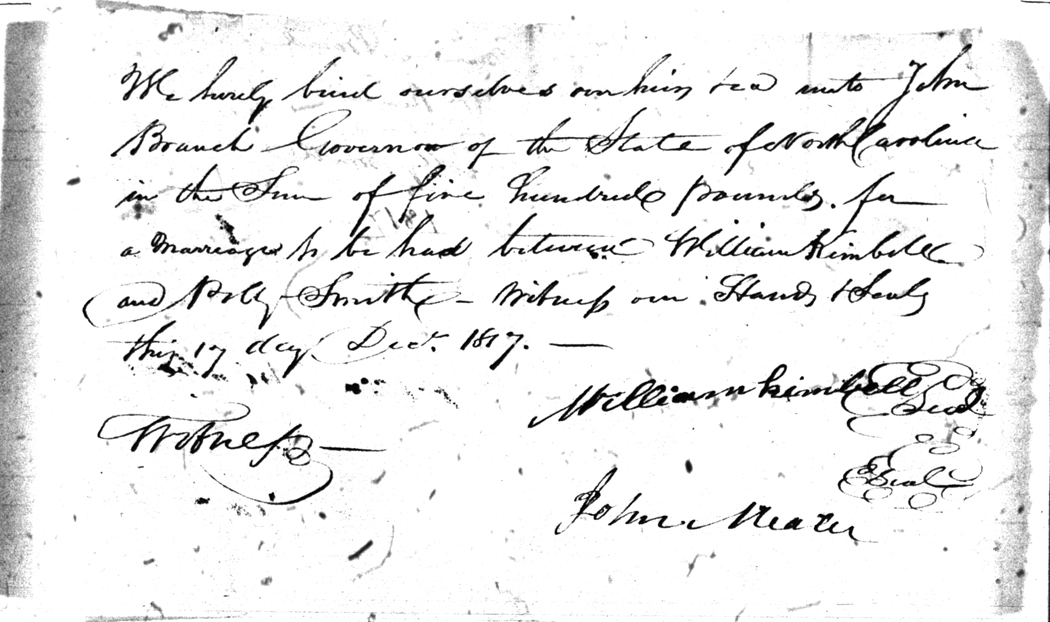 We hereby bind ourselves our heirs &ca unto John
Branch Governor of the State of North Carolina
in the Sum of five hundred pounds. for
a Marriage to be had between William Kimbell
and Polly Smith – Witness our Hands & Seals
this 17 day Decr. 1817. —
William Kimbell Seal
Witness —
Seal
John